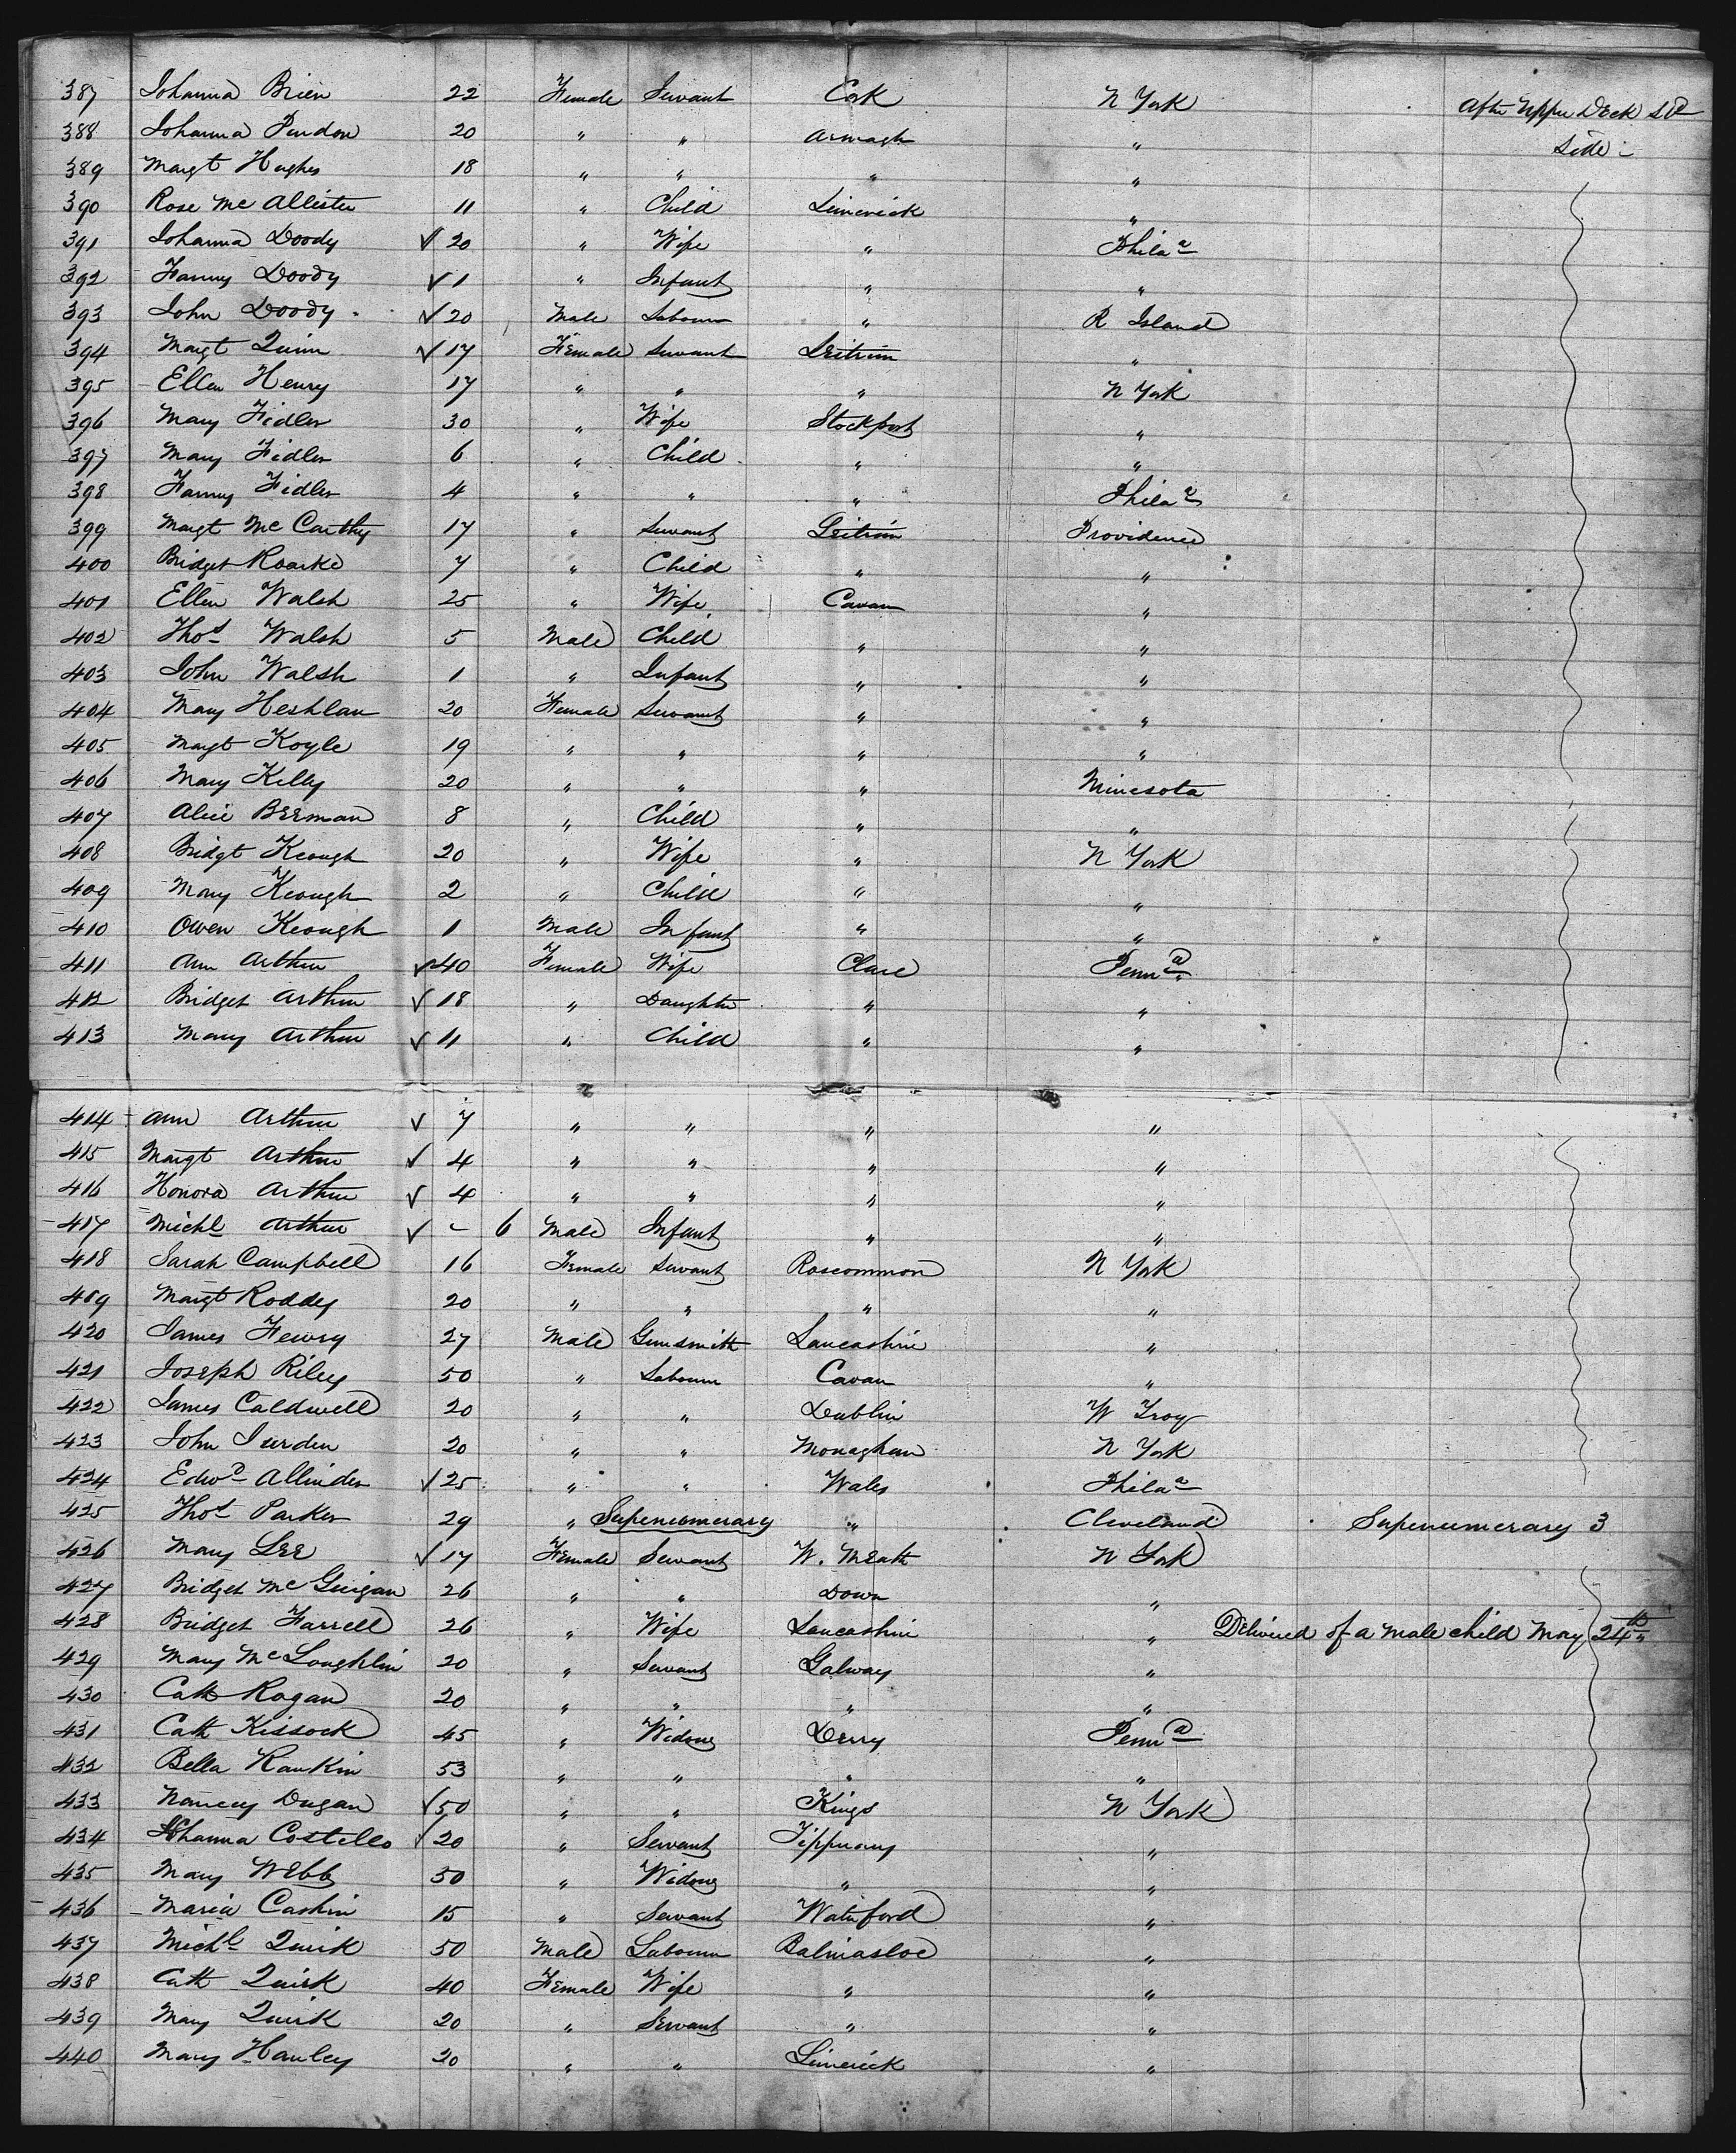 387 Johanna Brien 22 Female Servant Cork N York After Upper Deck S P
388 Johanna Purdon 20 " " Armagh " Side
389 Margt Hughes 18 " " " "
390 Rose Mc Allister 11 " Child Limerick "
391 Johanna Doody √ 20 " Wife " Phila
392 Fanny Doody √ 1 " Infant " "
393 John Doody √ 20 Male Labourer " R Island
394 Margt Quinn √ 17 Female Servant Leitrim "
395 Ellen Henry 17 " " " N York
396 Mary Fidler 30 " Wife Stockport "
397 Mary Fidler 6 " Child " "
398 Fanny Fidler 4 " " " Phila
399 Margt Mc Carthy 17 " Servant Leitrim Providence
400 Bridget Roarke 7 " Child " "
401 Ellen Walsh 25 " Wife Cavan "
402 Thos Walsh 5 Male Child " "
403 John Walsh 1 " Infant " "
404 Mary Heshlan 20 Female Servant " "
405 Margt Koyle 19 " " " "
406 Mary Kelly 20 " " " Minesota
407 Alice Berman 8 " Child " "
408 Bridgt Keough 20 " Wife " N York
409 Mary Keough 2 " Child " "
410 Owen Keough 1 Male Infant " "
411 Ann Arthur √ 40 Female Wife Clare Penna
412 Bridget Arthur √ 18 " Daughter " "
413 Mary Arthur √ 11 " Child " "
414 Ann Arthur √ 7 " " " "
415 Margt Arthur √ 4 " " " "
416 Honora Arthur √ 4 " " " "
417 Michl Arthur √ - 6 Male Infant " "
418 Sarah Campbell 16 Female Servant Roscommon N York
419 Margt Roddy 20 " " " "
420 James Fewry 27 Male Gunsmith Lancashire "
421 Joseph Riley 50 " Labourer Cavan "
422 James Caldwell 20 " " Dublin W Troy
423 John Jurden 20 " " Monaghan N York
424 Edwd Allinder √ 25 " " Wales Phila
425 Thos Parker 29 " Supernumerary " Cleveland Supernumerary 3
426 Mary Lee √ 17 Female Servant W. Meath N York
427 Bridget Mc Guigan 26 " " Down "
428 Bridget Farrell 26 " Wife Lancashire " Delivered of a male child May 24th
429 Mary Mc Loughlin 20 " Servant Galway "
430 Cath Rogan 20 " " " "
431 Cath Kissock 45 " Widow Derry Penna
432 Bella Rankin 53 " " " "
433 Nancy Dugan √ 50 " " Kings N York
434 Johanna Costello √ 20 " Servant Tipperary "
435 Mary Webb 50 " Widow " "
436 Maria Cashin 15 " Servant Waterford "
437 Michl Quirk 50 Male Labourer Balinasloe "
438 Cath Quirk 40 Female Wife " "
439 Mary Quirk 20 " Servant " "
440 Mary Hanley 20 " " Limerick "